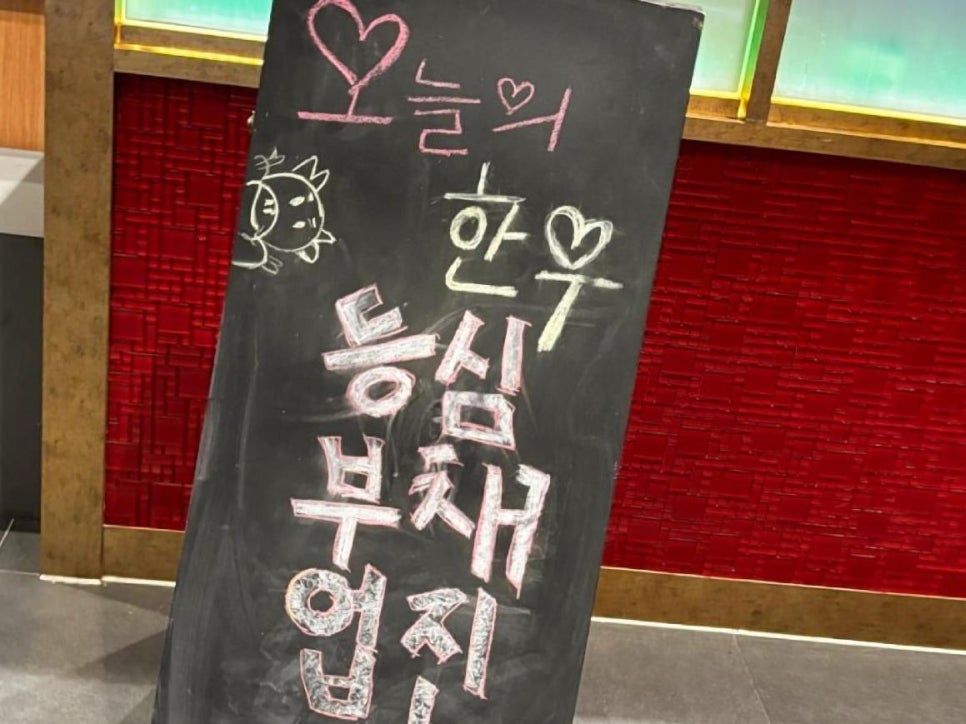 오늘의
한우
등심
부채
업진